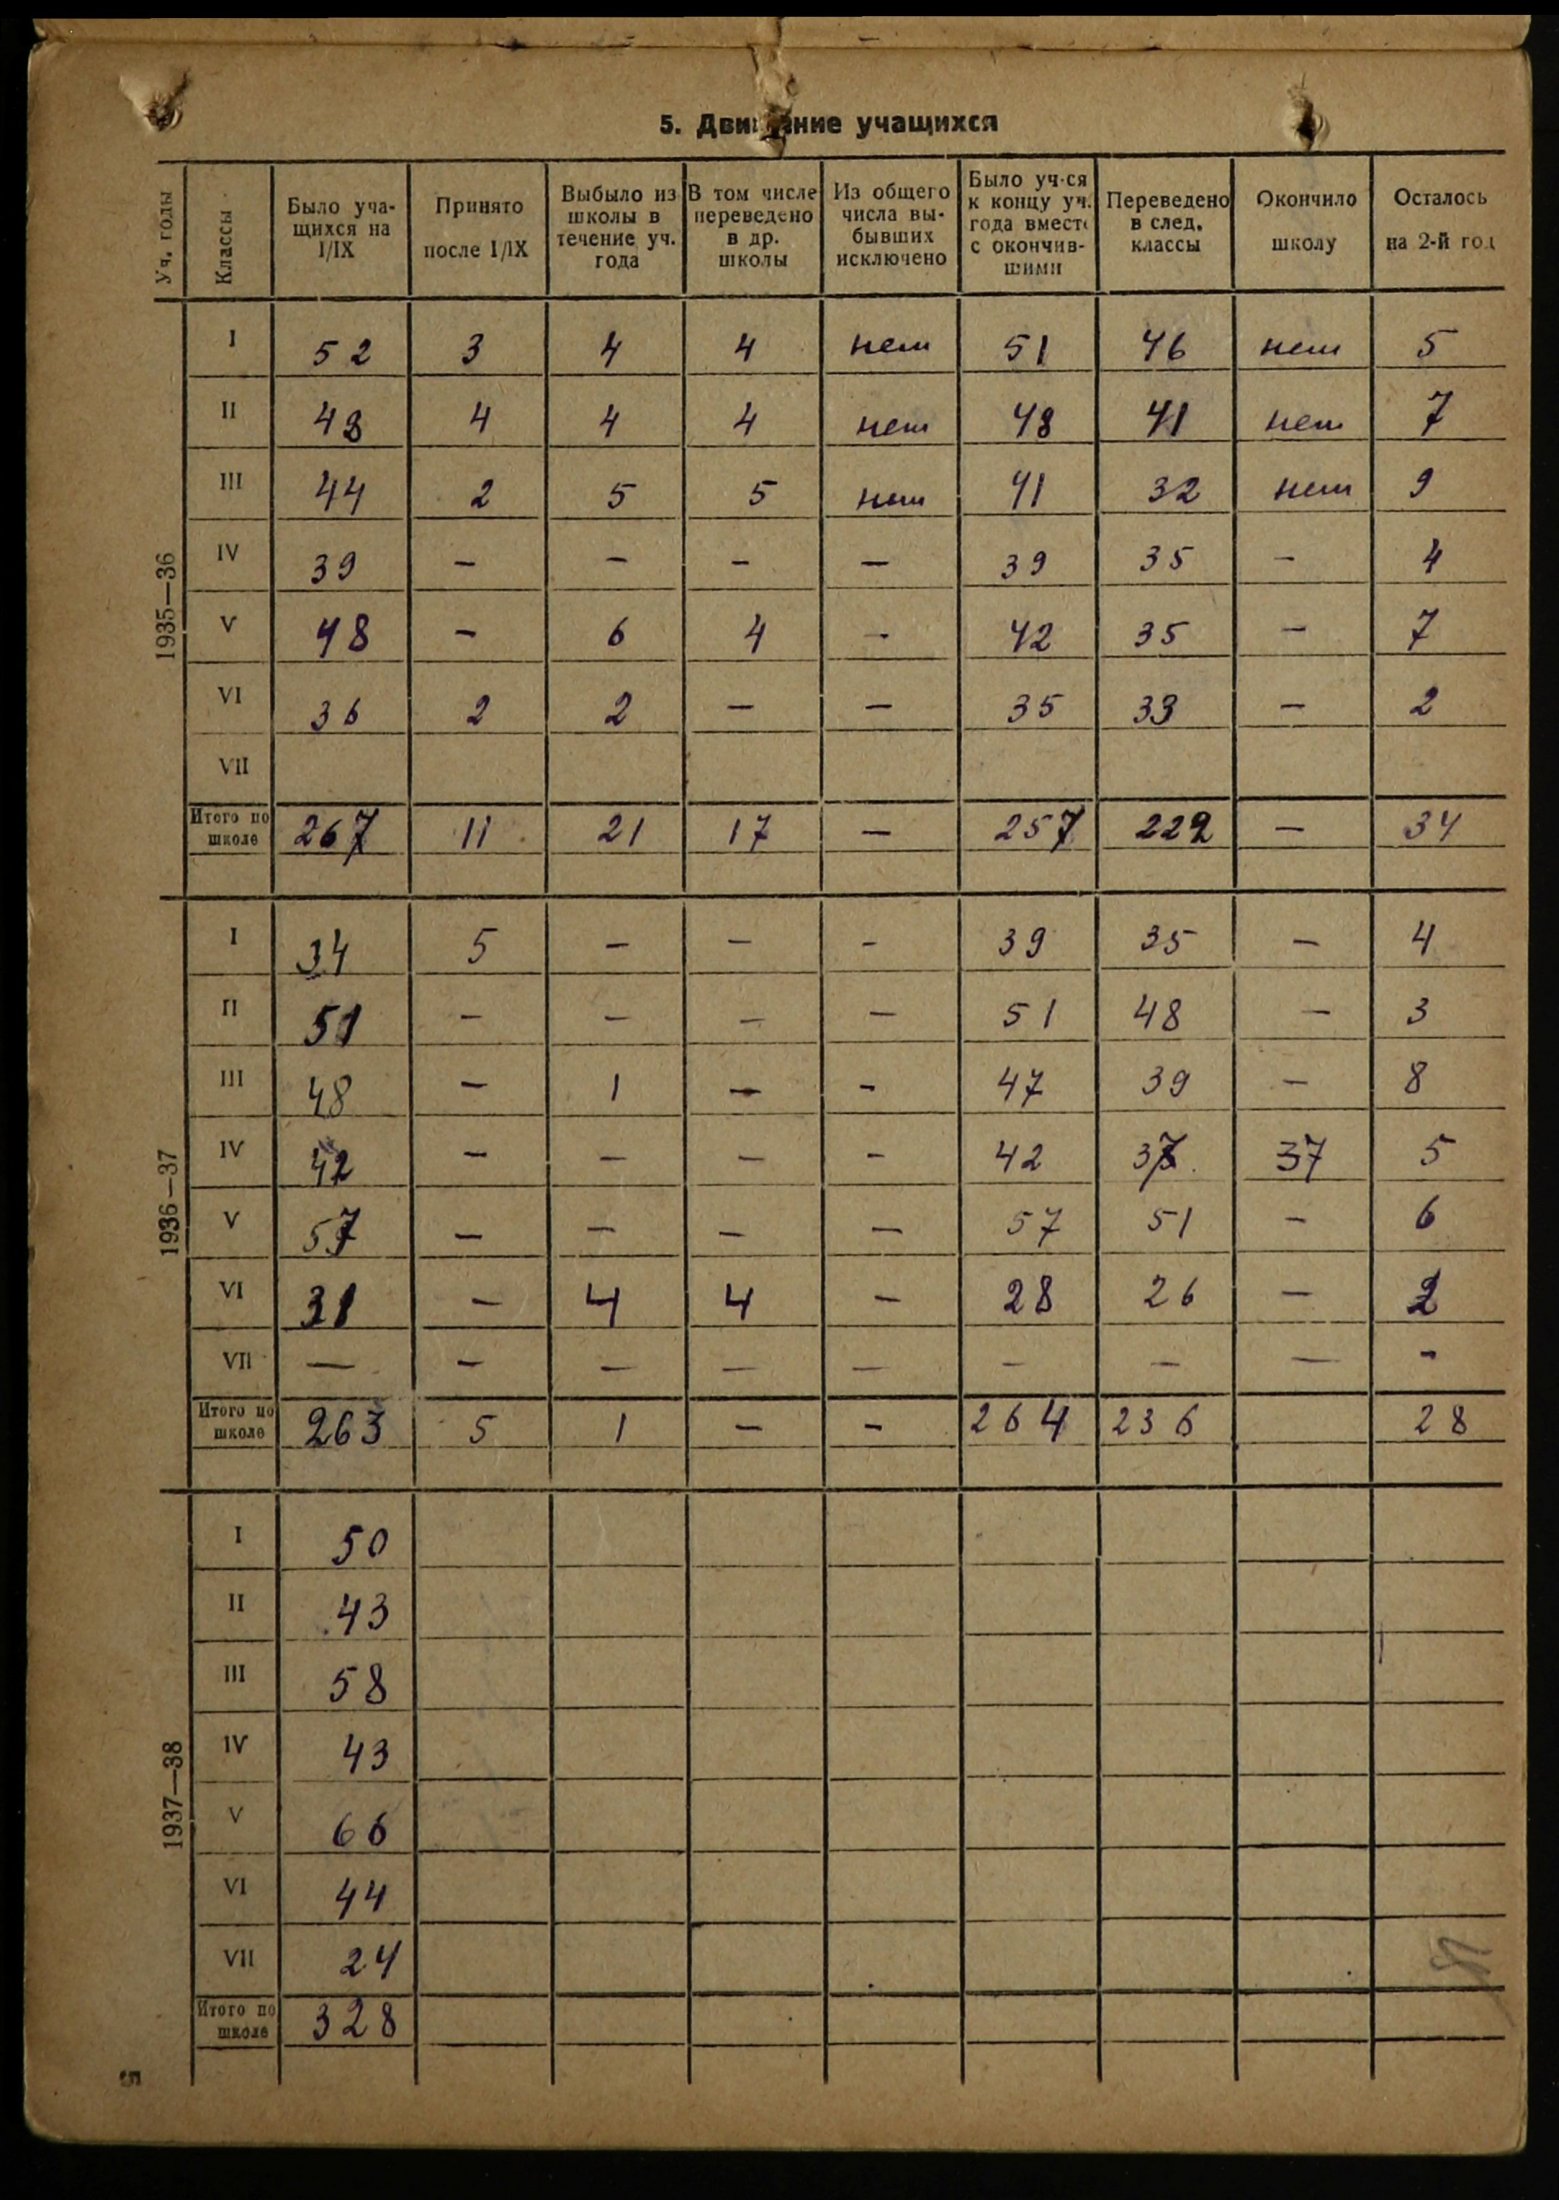 5. Движение учащихся
Уч. годы | Классы | Было уча-щихся на I/IX | Принято после I/IX | Выбыло из школы в течение уч. года | В том числе переведено в др. школы | Из общего числа вы-бывших исключено | Было уч-ся к концу уч. года вместе с окончив-шими | Переведено в след. классы | Окончило школу | Осталось на 2-й год
1935—36
I | 52 | 3 | 4 | 4 | нет | 51 | 46 | нет | 5
II | 48 | 4 | 4 | 4 | нет | 48 | 41 | нет | 7
III | 44 | 2 | 5 | 5 | нет | 41 | 32 | нет | 9
IV | 39 | — | — | — | — | 39 | 35 | — | 4
V | 48 | — | 6 | 4 | - | 42 | 35 | — | 7
VI | 36 | 2 | 2 | — | — | 35 | 33 | — | 2
VII
Итого по школе | 267 | 11 | 21 | 17 | — | 257 | 222 | — | 34
1936—37
I | 34 | 5 | — | — | - | 39 | 35 | — | 4
II | 51 | — | — | — | — | 51 | 48 | — | 3
III | 48 | — | 1 | — | - | 47 | 39 | — | 8
IV | 42 | — | — | — | - | 42 | 37 | 37 | 5
V | 57 | — | — | — | — | 57 | 51 | - | 6
VI | 31 | — | 4 | 4 | — | 28 | 26 | — | 2
VII | — | — | — | — | — | — | — | — | -
Итого по школе | 263 | 5 | 1 | — | - | 264 | 236 | | 28
1937—38
I | 50
II | 43
III | 58
IV | 43
V | 66
VI | 44
VII | 24
Итого по школе | 328
5